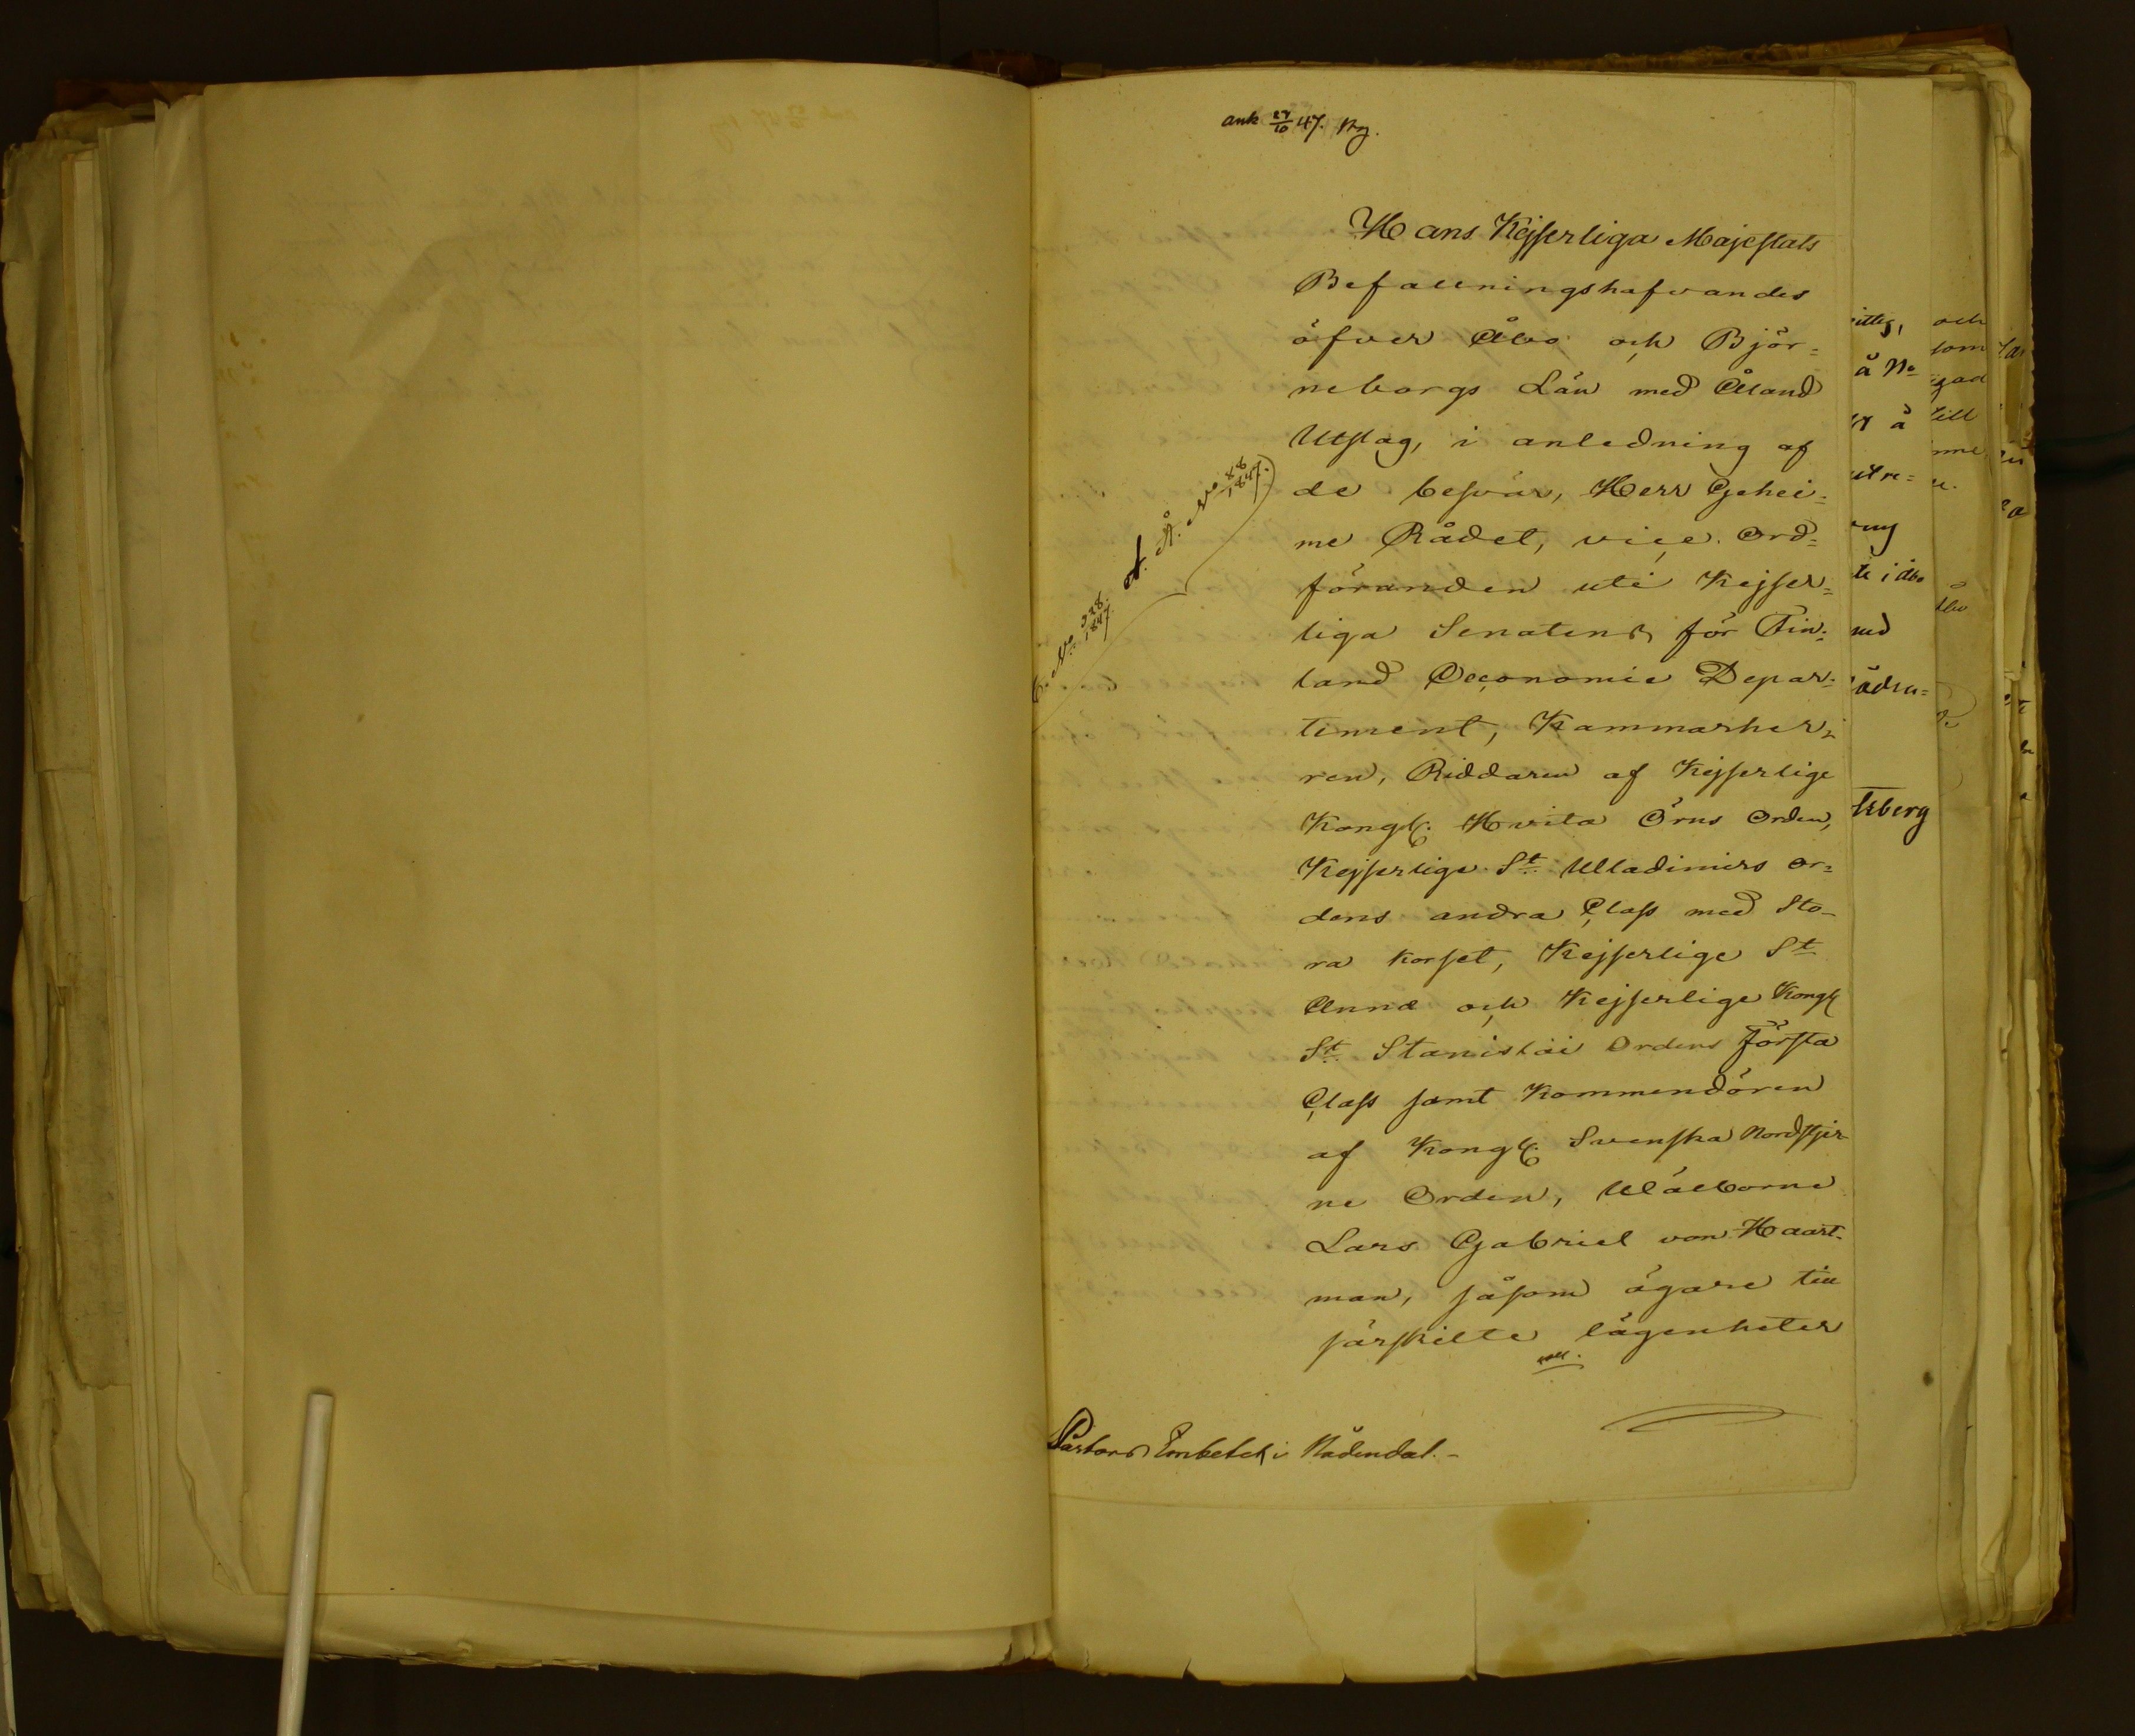 ank 27/10 47.
Hans Kejserliga Majestäts
Befallningshafvandes
öfver Åbo och Björ=
neborgs Län med Åland
Utslag, i anledning af
de besvär, Herr Gehei=
me Rådet, vice Ord=
föranden uti Kejser=
liga Senatens för Fin=
land Oeconomie Depar=
tement, Kammarher=
ren, Riddaren af Kejserlige
Kongl. Hvita Örns Orden,
Kejserlige St. Wladimirs Or=
dens andra Class med Sto-
ra korset, Kejserlige St
Annæ och Kejserlige Kongl
St. Stanislai Ordens Första
Class samt Kommendören
af Kongl. Svenska Nordstjer-
ne Orden, Wälborne
Lars Gabriel von Haart-
man, såsom ägare till
särskilte lägenheter
A. Å. No 88 1847.
C. No 328. 1847
Pastors Embetet i Nådendal.-
ittes,
å No
å
utre=
ung
te i Åbo
med
ädra=
berg
och
som
gad
till